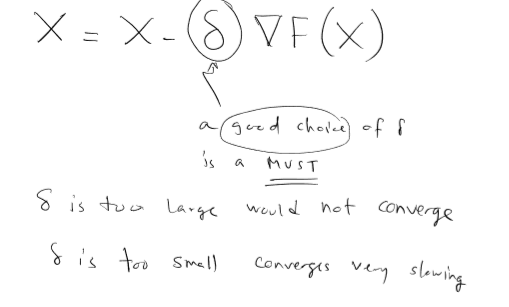 X = X - δ ∇F(X)
a good choice of δ
is a MUST
δ is too large would not converge
δ is too small converges very slowing